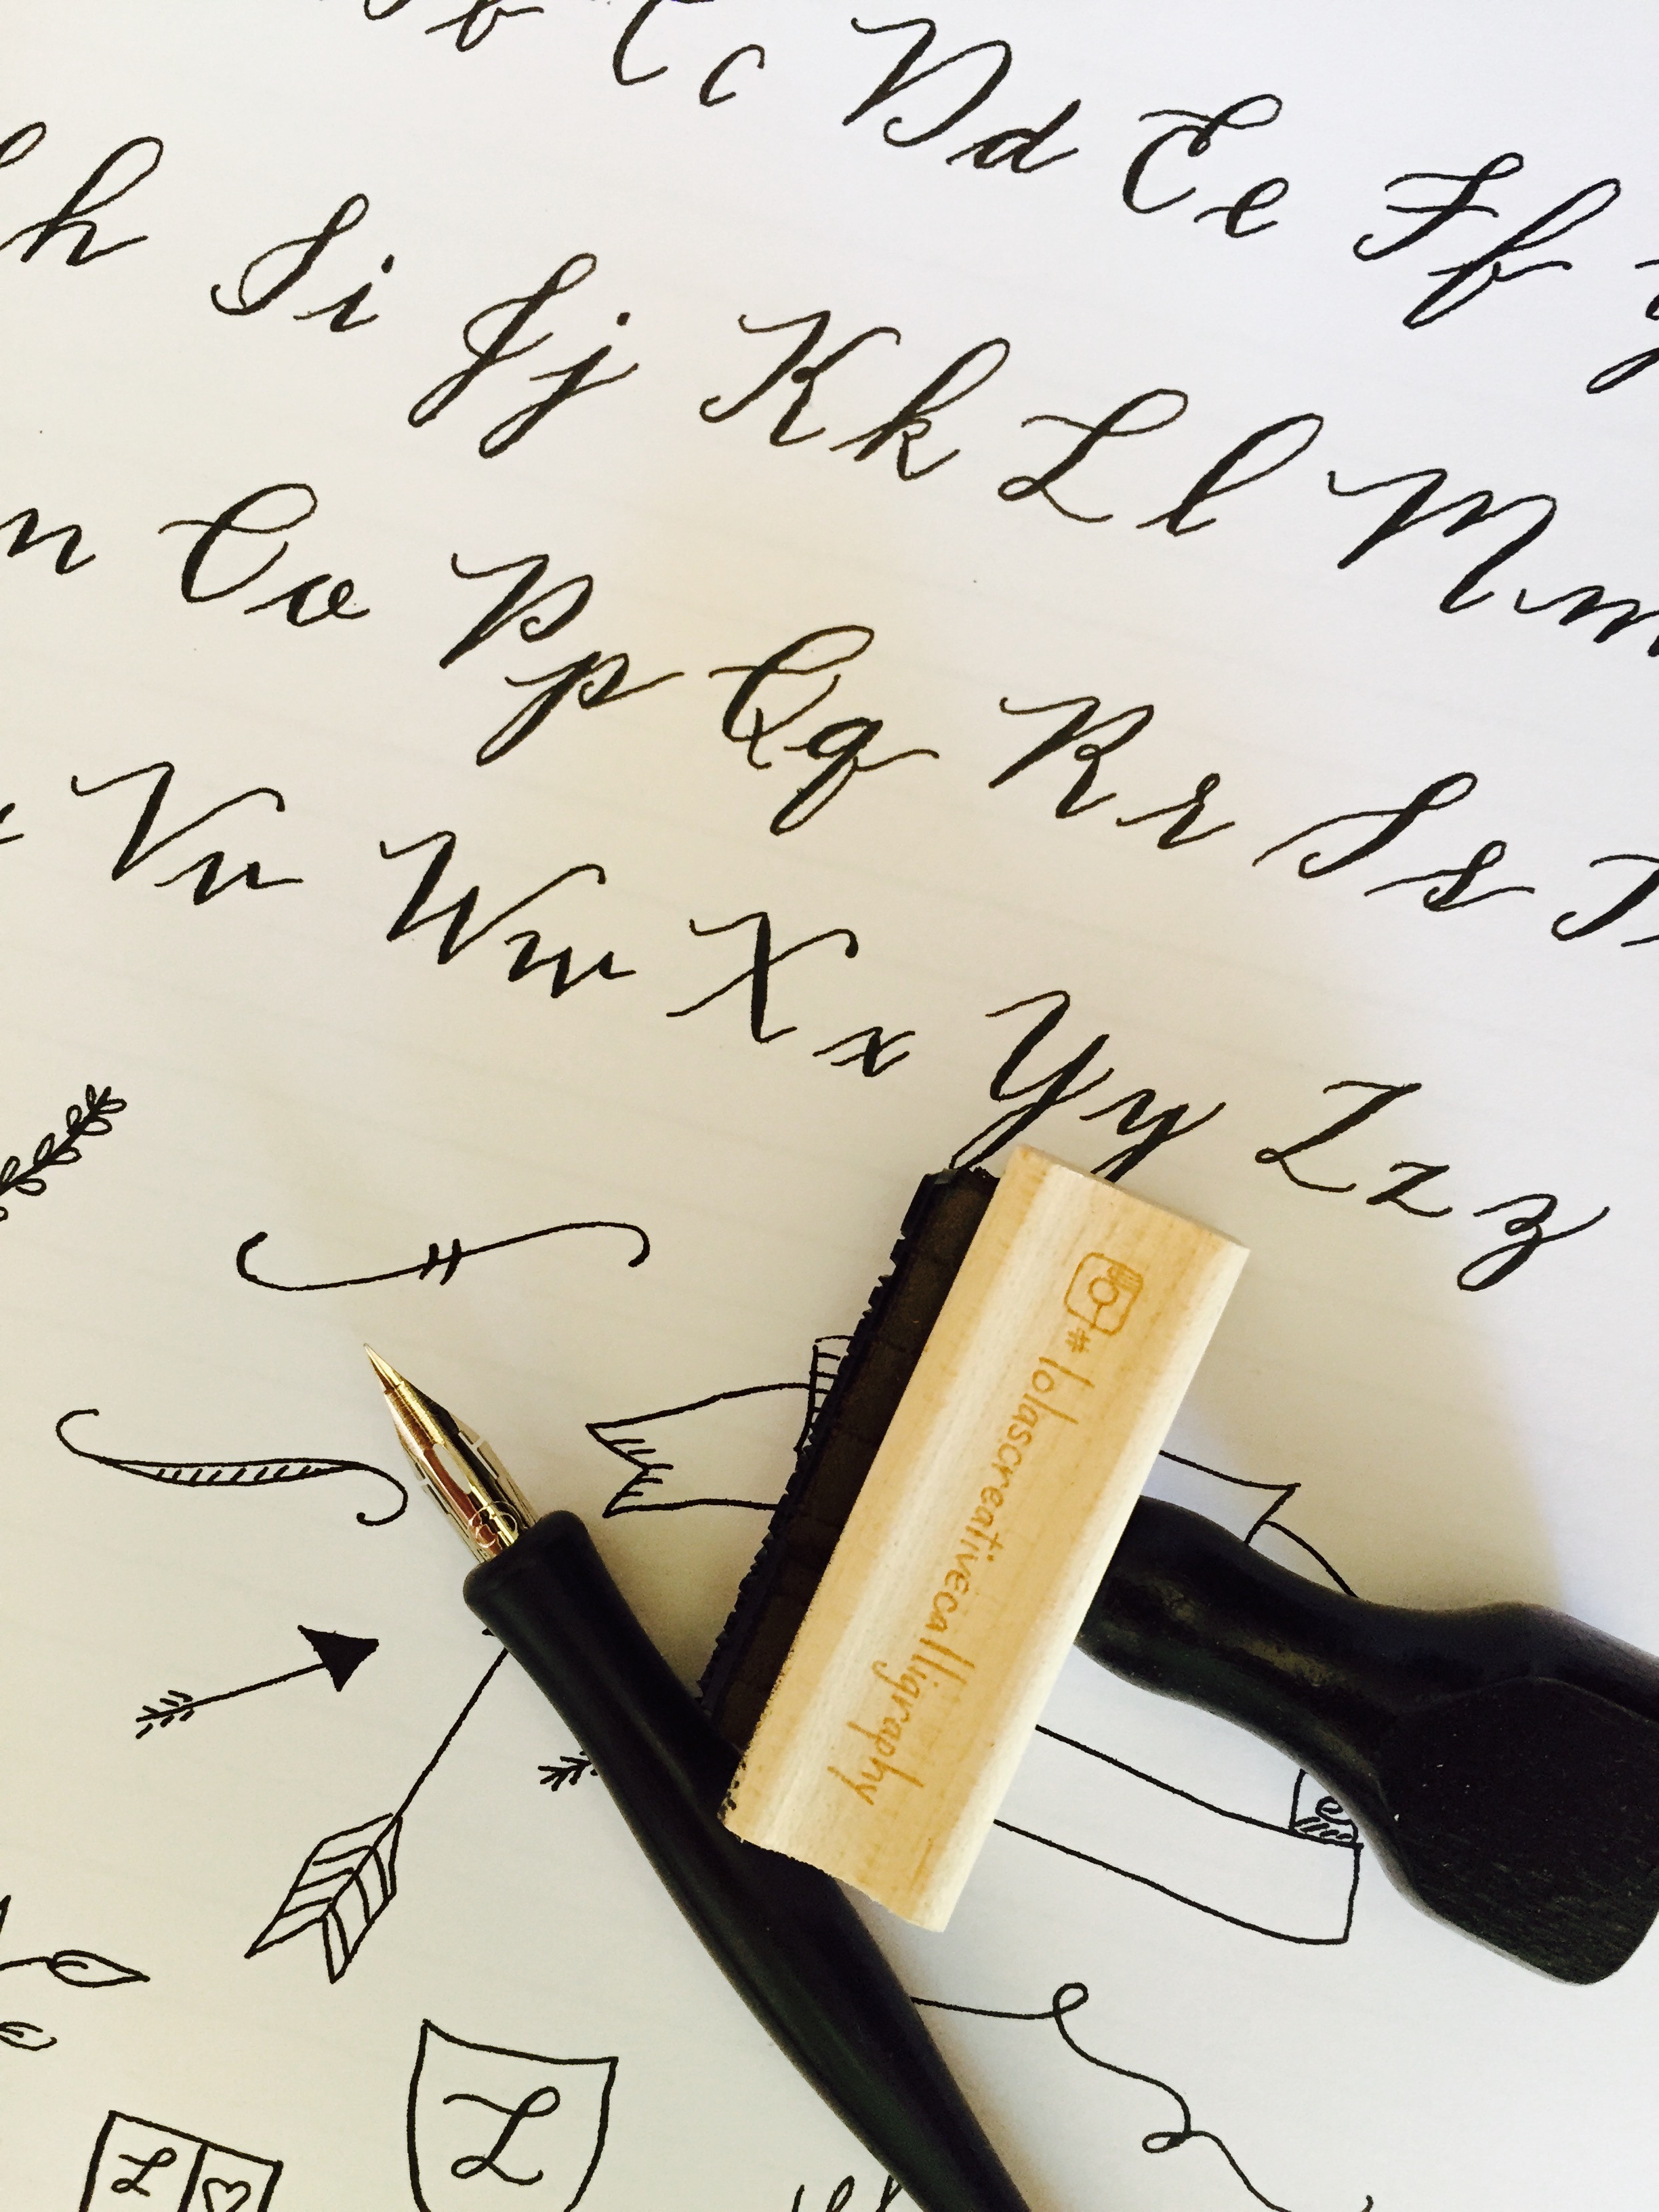 b C c D d E e F f
h I i J j K k L l M m
n O o P p Q q R r S s T
V v W w X x Y y Z z z
#lolascreativecalligraphy
L
L